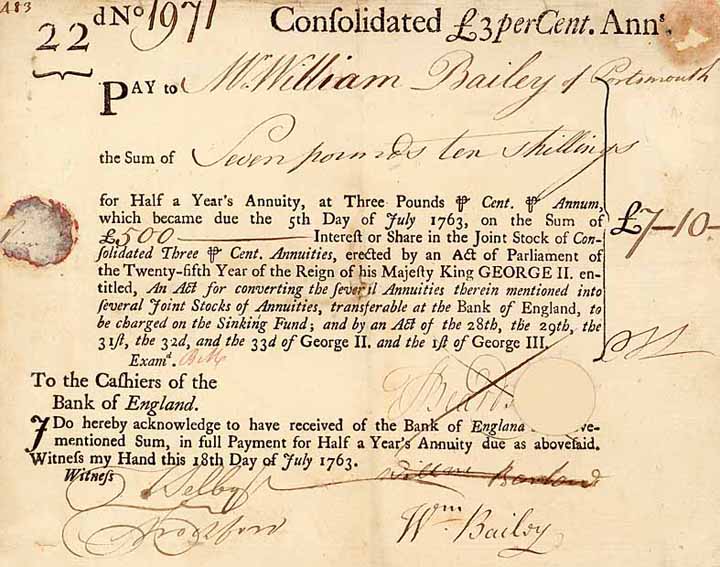 A83
22 d No 1971 Conſolidated £3 per Cent. Anns.
PAY to Mr. William Bailey of Portsmouth
the Sum of Seven pounds ten shillings
for Half a Year's Annuity, at Three Pounds ⅌ Cent. ⅌ Annum,
which became due the 5th Day of July 1763, on the Sum of
£500 Intereſt or Share in the Joint Stock of Con-
ſolidated Three ⅌ Cent. Annuities, erected by an Act of Parliament of
the Twenty-fifth Year of the Reign of his Majeſty King GEORGE II. en-
titled, An Act for converting the ſeveral Annuities therein mentioned into
ſeveral Joint Stocks of Annuities, transferable at the Bank of England, to
be charged on the Sinking Fund; and by an Act of the 28th, the 29th, the
31ſt, the 32d, and the 33d of George II. and the 1ſt of George III.
£7-10-
Examd.
To the Caſhiers of the
Bank of England.
I Do hereby acknowledge to have received of the Bank of England ve-
mentioned Sum, in full Payment for Half a Year's Annuity due as aboveſaid.
Witneſs my Hand this 18th Day of July 1763.
Witneſs
Selby
Wm Bailey